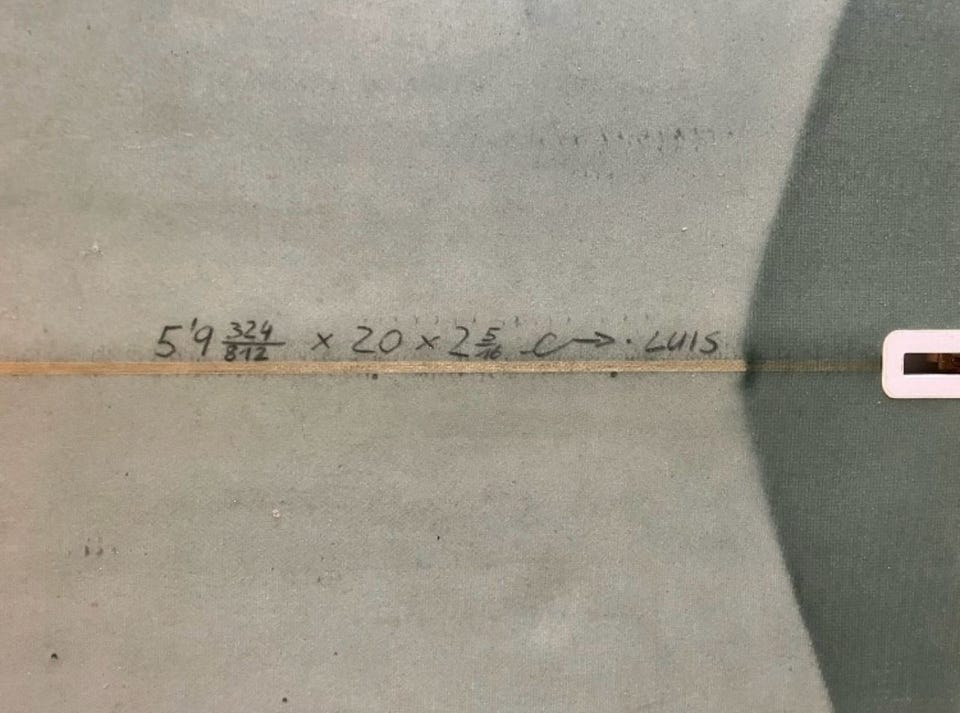 5'9 324/812 x 20 x 2 5/16 C→. LUIS